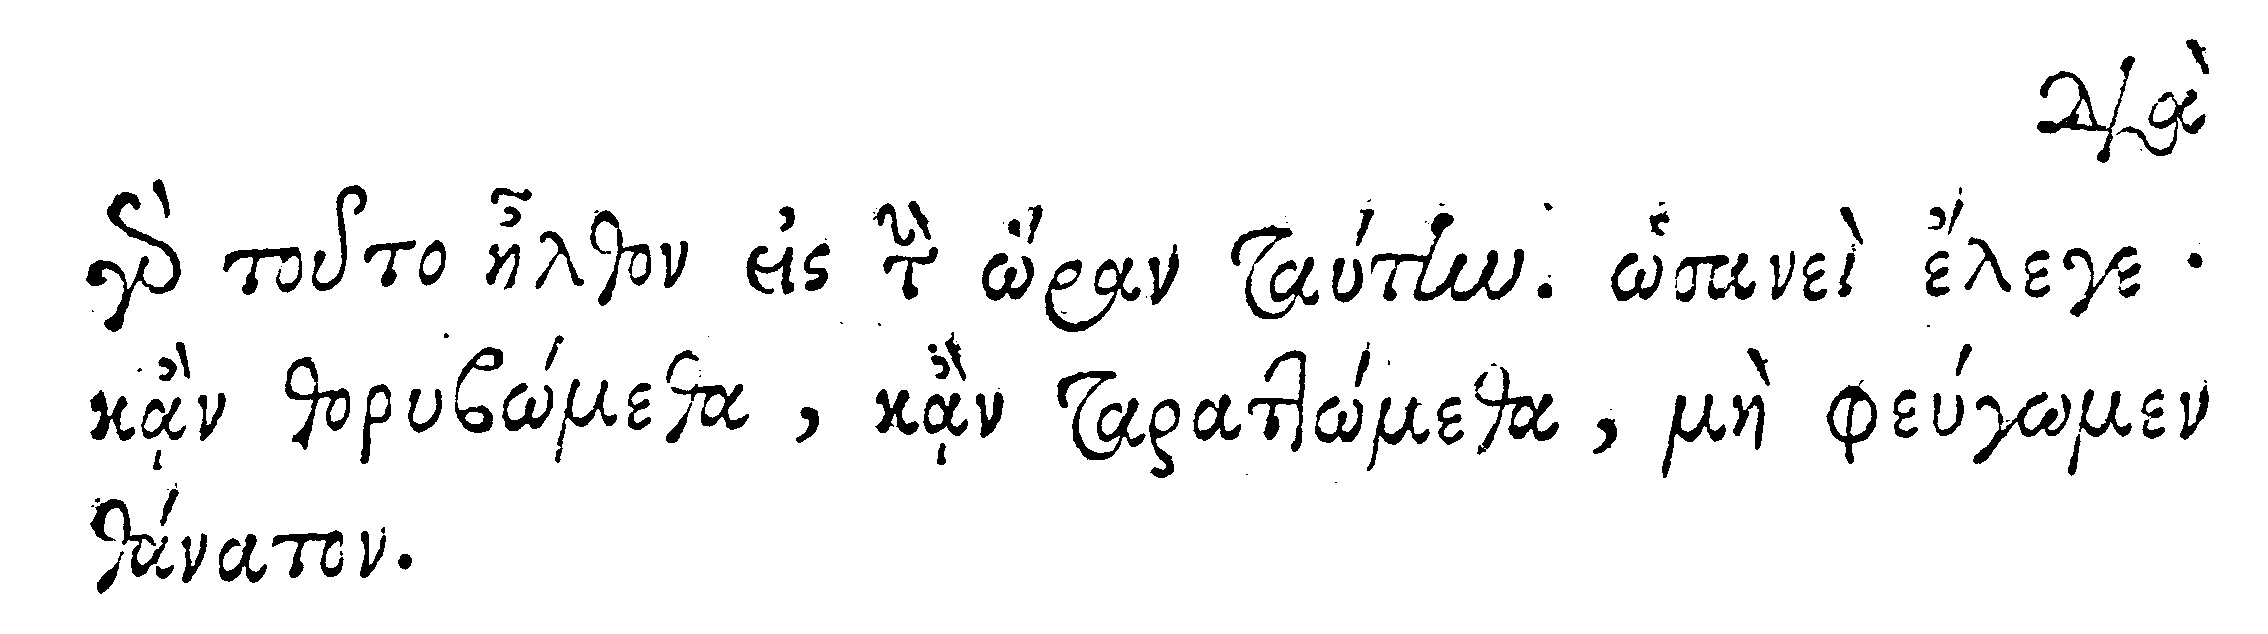 διὰ
γὰρ τοῦτο ἦλθον εἰς τὴν ὥραν ταύτην. ὡσανεὶ ἔλεγε.
κᾂν θορυβώμεθα, κᾂν ταραττώμεθα, μὴ φεύγωμεν
θάνατον.